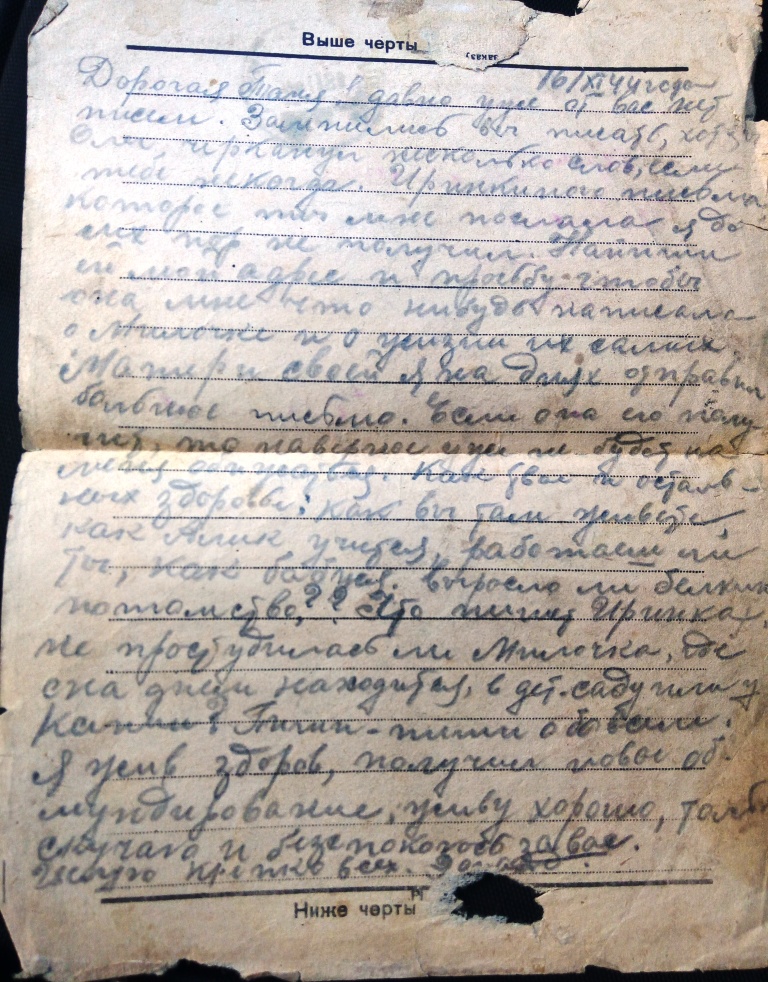 Выше черты
заказ,
16/XI 44 года
Дорогая Таня! давно уже от вас нет
писем. Заленились вы писать, хотя
бы черканул несколько слов, если
тебе некогда. Иринкиного письма
которое ты мне послала я до
сих пор не получил. Напиши
ей мой адрес и просьбу чтобы
она мне что нибудь написала
о Милочке и о жизни их самих.
Матери своей я на днях отправил
большое письмо. Если она его полу-
чит, то наверное уже не будет на
меня обижаться. Как твое и осталь-
ных здоровье; как вы там живете
как Алик учится, работаеш ли
ты, как бабуся. выросло ли белкино
потомство?? Что пишет Иринка,
не простудилась ли Милочка, где
она днем находится, в дет. саду или у
Пиши - пиши обо всем.
Я жив здоров, получил новое об-
мундирование, живу хорошо, только
скучаю и безспокоюсь за вас.
Целую крепко всех.
Ниже черты